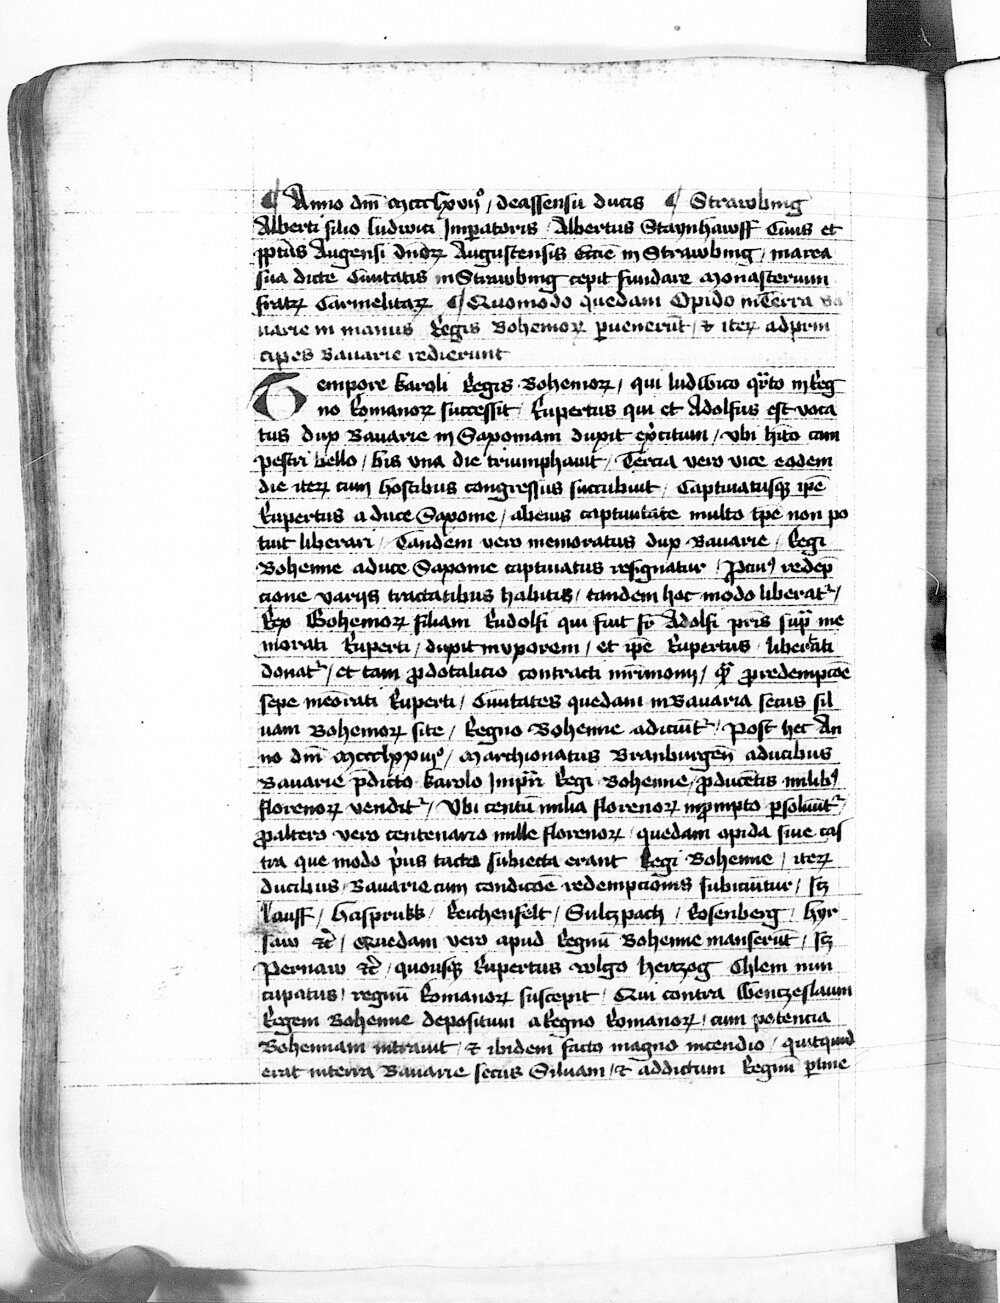 ¶ Anno dm̄ mccclxvijº / de assensu ducis ¶ Strawbing
Alberti filio ludwici Imperatoris / Albertus Staynhawff Ciuis et
Augensi dn̄oꝝ Augustensis Eccie in Strawbing / in area
sua dicte Ciuitatis in Strawbing cepit fundare Monasterium
fratꝝ Carmelitaꝝ ¶ Quomodo quedam Opido in Terra Ba
uarie in manus Regis Bohemoꝝ ꝑuenerūt / & iteꝝ ad prin
cipes Bauarie redierunt
Tempore karoli Regis Bohemoꝝ / qui ludwico qͣrto in Reg
no Romanoꝝ successit / Rupertus qui et Adolfus est voca
tus dux Bauarie in Saxoniam duxit exͬcitum / vbi hito cam
pestri bello / bis vna die triumphauit / Tercia vero vice eodem
die iteꝝ cum hostibus congressus succubuit / Captiuatusqꝫ ip̄e
Rupertus a duce Saxonie / ab eius captiuitate multo tp̄e non po
tuit liberari / Tandem vero memoratus dux Bauarie / Regi
Bohemie a duce Saxonie captiuatus resignatur / redēp
cione varijs tractatibus habitis / tandem hoc modo liberatᷣ /
Rex Bohemoꝝ filiam Rudolfi qui fuit fr̄ Adolfi pr̄is sup̄ me
morati Ruperti / duxit in vxorem / et ip̄e Rupertus / libertati
donatᷣ / et tam ꝓ dotalicio contracti mr̄imonij / qͣꝫ ꝓ redempcōe
sepe meōrati Ruperti / Ciuitates quedam in Bauaria secus sil
uam Bohemoꝝ site / Regno Bohemie adiciūtᷣ / Post hec An
no dm̄ mccclxxiijº / Marchionatus Branburgen̄ a ducibus
Bauarie p̄dicto karolo Imp̄ri Regi Bohemie / ꝓ ducētis milibꝰ
florenoꝝ venditᷣ / Vbi centū milia florenoꝝ in prompto ꝑsoluūtᷣ /
ꝓ altero vero centenario mille florenoꝝ / quedam opida siue cas
tra que modo pͥus tacto subiecta erant Regi Bohemie / iteꝝ
ducibus Bauarie cum condicōe redempcionis subiciūtur / scꝫ
lauff / Hersprukk / Reichenfelt / Sulczpach / Rosenberg / Hyr
saw &c̄ / Quedam vero apud Regnū Bohemie manserūt / scꝫ
Pernaw &c̄ / quousqꝫ Rupertus wlgo hertzog Chlem nun
cupatus / regnū Romanoꝝ suscepit / Qui contra Wenczeslaum
Regem Bohemie depositum a Regno Romanoꝝ / cum potencia
Bohemiam intrauit / & ibidem facto magno incendio / quitquid
erat in terra Bauarie secus Siluam / & addictum Regnū ꝑtine